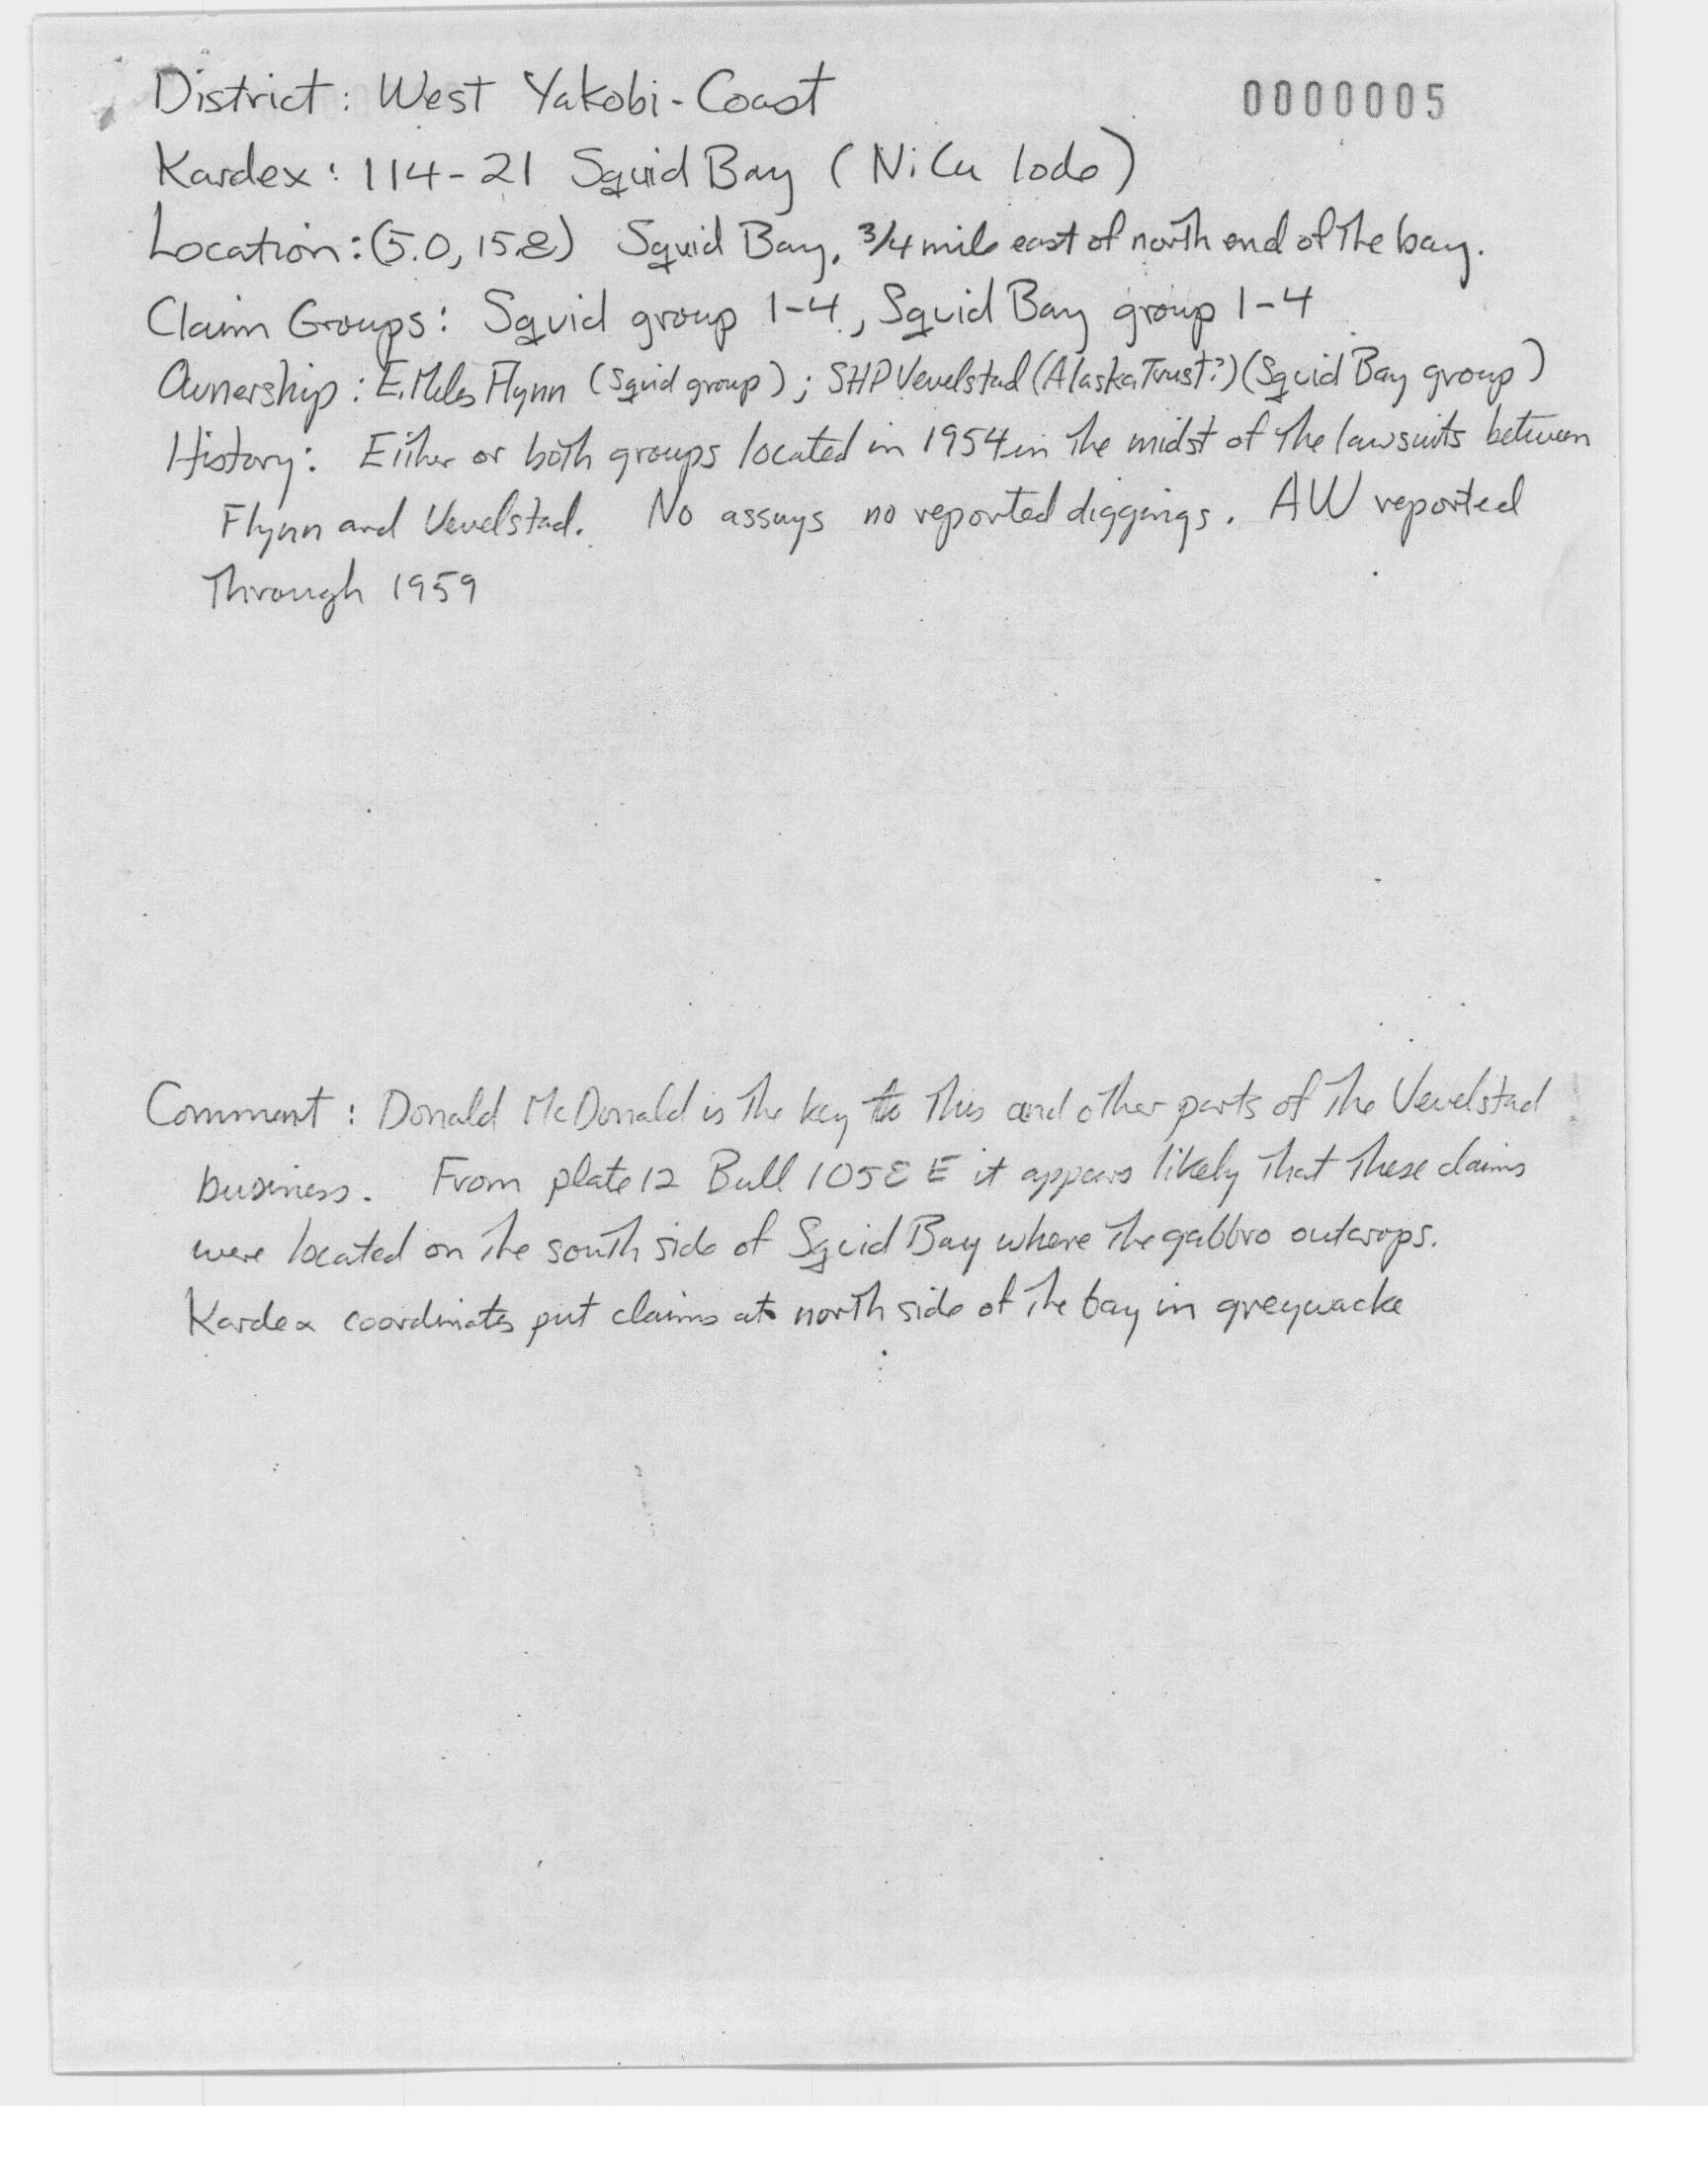 District: West Yakobi-Coast
0000005
Kardex: 114-21 Squid Bay (NiCu lode)
Location: (5.0, 15.8) Squid Bay, 3/4 mile east of north end of the bay.
Claim Groups: Squid group 1-4, Squid Bay group 1-4
Ownership: E. Miles Flynn (Squid group); SHP Vevelstad (Alaska Trust?) (Squid Bay group)
History: Either or both groups located in 1954 in the midst of the lawsuits between
Flynn and Vevelstad. No assays no reported diggings. AW reported
through 1959
Comment: Donald McDonald is the key to this and other parts of the Vevelstad
business. From plate 12 Bull 1058 E it appears likely that these claims
were located on the south side of Squid Bay where the gabbro outcrops.
Kardex coordinates put claims at north side of the bay in greywacke